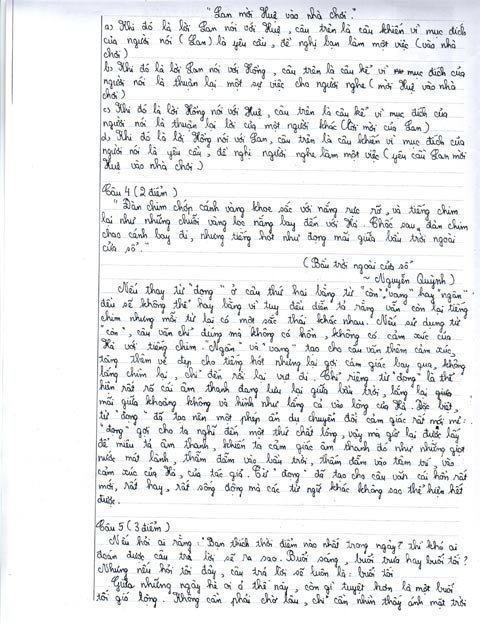 "Lan mời Huệ vào nhà chơi."
a) Khi đó là lời Lan nói với Huệ, câu trên là câu khiến vì mục đích
của người nói (Lan) là yêu cầu, đề nghị bạn làm một việc (vào nhà
chơi)
b) Khi đó là lời Lan nói với Hồng, câu trên là câu kể vì mục đích của
người nói là thuật lại một sự việc cho người nghe (mời Huệ vào nhà
chơi)
c) Khi đó là lời Hồng nói với Huệ, câu trên là câu kể vì mục đích của
người nói là thuật lại lời của một người khác (lời mời của Lan)
d) Khi đó là lời Hồng nói với Lan, câu trên là câu khiến vì mục đích của
người nói là yêu cầu, đề nghị người nghe làm một việc (yêu cầu Lan mời
Huệ vào nhà chơi)
Câu 4 (2 điểm)
"Đàn chim chớp cánh vàng khoe sắc với nắng rực rỡ, và tiếng chim
lại như những chuỗi vàng lọc nắng bay đến với Hà. Chốc sau, đàn chim
chao cánh bay đi, nhưng tiếng hót như đọng mãi giữa bầu trời ngoài
cửa sổ."
(Bầu trời ngoài cửa sổ
~ Nguyễn Quỳnh)
Nếu thay từ "đọng" ở câu thứ hai bằng từ "còn", vang hay ngân"
đều sẽ không thể hay bằng vì tuy đều diễn tả rằng vẫn còn lại tiếng
chim nhưng mỗi từ lại có một sắc thái khác nhau. Nếu sử dụng từ
"còn", câu văn chỉ đúng mà không có hồn, không có cảm xúc của
Hà với tiếng chim. "Ngân" và "vang" tạo cho câu văn thêm cảm xúc,
tăng thêm vẻ đẹp cho tiếng hót nhưng lại gợi cảm giác bay qua, không
lắng chìm lại, chỉ đến rồi lại vụt đi. Chỉ riêng từ "đọng" là thể
hiện rất rõ cái âm thanh đang lưu lại giữa bầu trời, lắng lại giữa
mãi giữa khoảng không và hình như lắng cả vào lòng của Hà. Đặc biệt,
từ "đọng" đã tạo nên một phép ẩn dụ chuyển đổi cảm giác rất mới mẻ:
"đọng" gợi cho ta nghĩ đến một thứ chất lỏng, vậy mà giờ lại được lấy
để miêu tả âm thanh, khiến ta cảm giác âm thanh đó như những giọt
nước mát lành, thấm đẫm vào bầu trời, thấm đẫm vào tâm trí, vào
cảm xúc của Hà, của tác giả. Từ "đọng" đã tạo cho câu văn cái hồn rất
mới, rất hay, rất sống động mà các từ ngữ khác không sao thể hiện hết
được.
Câu 5 (3 điểm)
Nếu hỏi ai rằng: "Bạn thích thời điểm nào nhất trong ngày?" thì khó ai
đoán được câu trả lời sẽ ra sao. Buổi sáng, buổi trưa hay buổi tối?
Nhưng nếu hỏi tôi đây, câu trả lời sẽ luôn là: buổi tối
Giữa những ngày hè oi ả thế này, còn gì tuyệt hơn là một buổi
tối gió lộng. Không cần phải chờ lâu, chỉ cần nhìn thấy ánh mặt trời